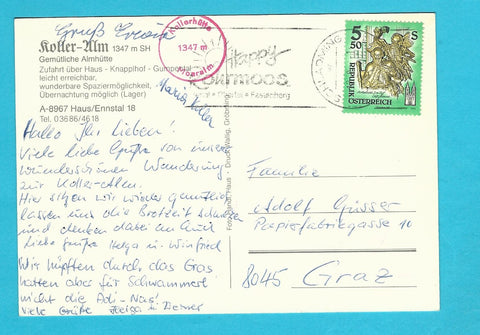 Gruß
Koller-Alm 1347 m SH
Gemütliche Almhütte
Zufahrt über Haus - Knapplhof - Gumpental
leicht erreichbar,
wunderbare Spaziermöglichkeit,
Übernachtung möglich (Lager)
A-8967 Haus/Ennstal 18
Tel. 03686/4618
Kollerhütte
1347 m
Happy
5 50 S
REPUBLIK
ÖSTERREICH
Hallo Ihr Lieben!
Viele liebe Grüße von unserer
wunderschönen Wanderung
zur Koller-Alm.
Hier sitzen wir
lassen uns die Brotzeit schmecken
und denken dabei an Euch
Liebe Grüße Helga u. Winfried
Wir hüpften durch das Gras
hatten aber für Schwammerl
nicht die Adi-Nas'!
Viele Grüße Helga u.
Familie
Adolf
Papierfabrikgasse
8045 Graz